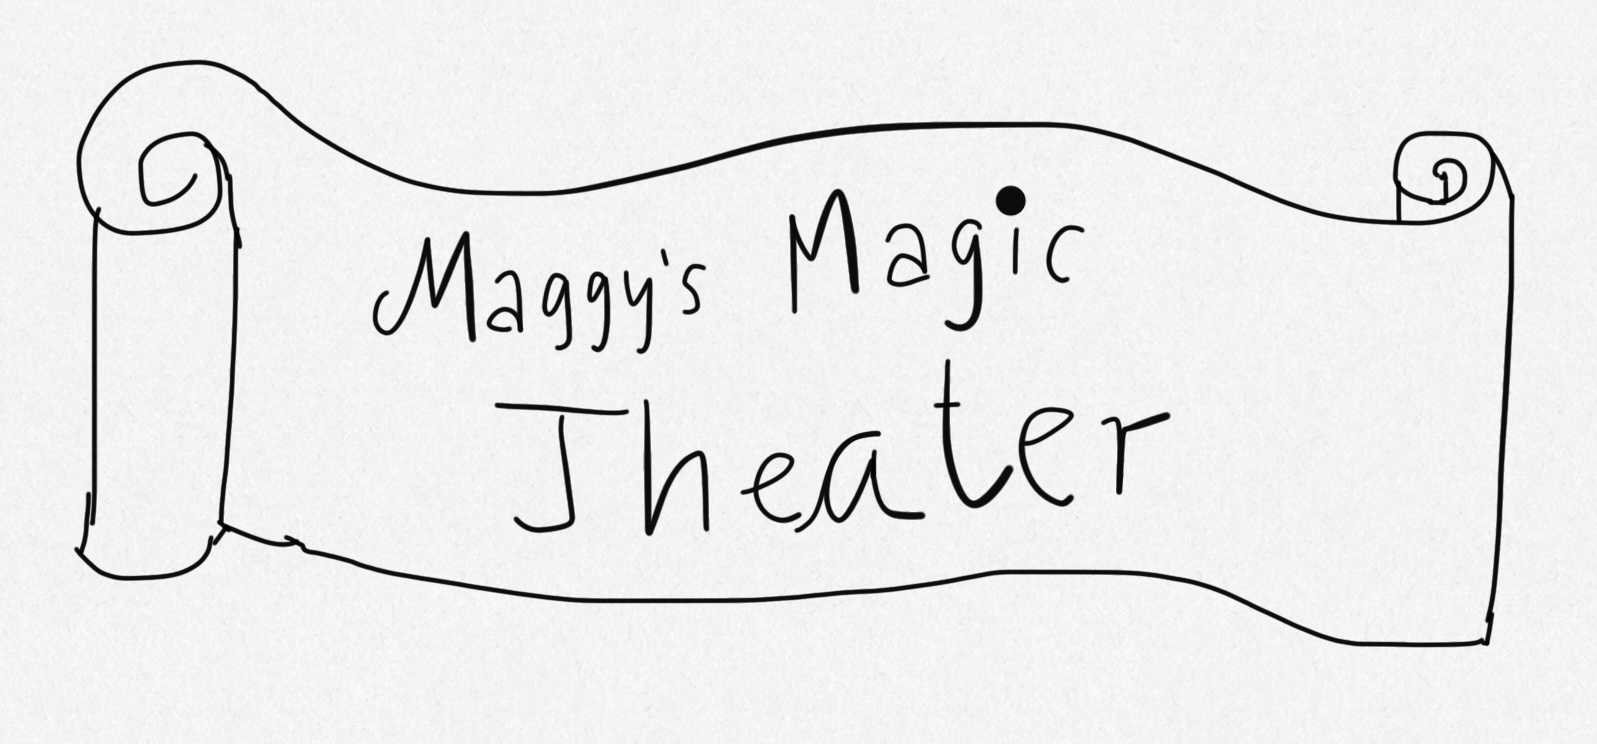 Maggy's Magic
Theater